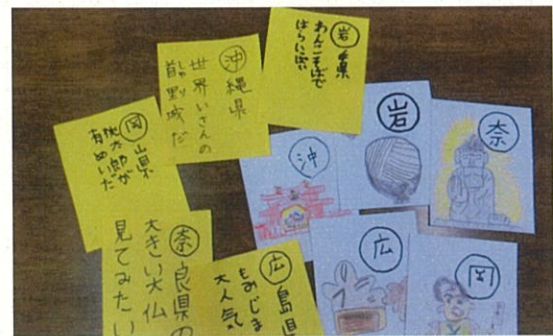 岩手県
わんこそばで
はらいっぱい
沖縄県
世界いさんの
しゅり
首里城だ
岡山県
桃太郎が
有めいだ
奈良県の
大きい大仏
見てみたい
広島県
もみじま
大人気
岩
奈
沖
広
岡